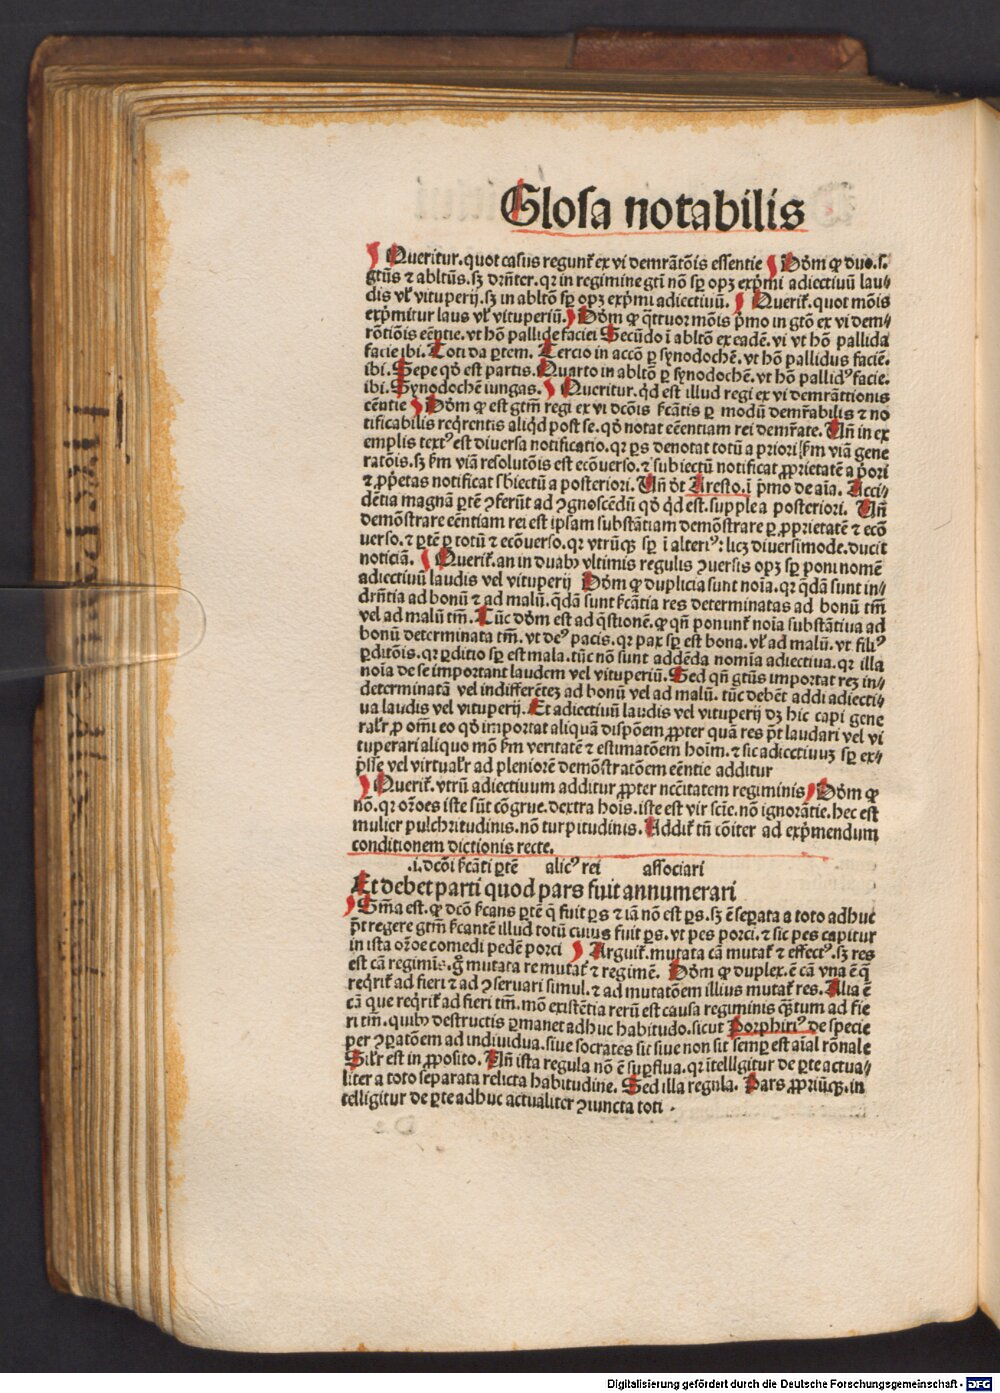 Glosa notabilis
Queritur.quot casus regunt̃ ex vi demrãtõis essentie Dõm ꝙ duo.s.
gtũs ⁊ abltũs.sꝫ drñter.qꝛ in regimine gtñ nõ sꝑ opꝫ exp̃mi adiectiuũ lau⸗
dis vl̃ vituperij.sꝫ in abltõ sꝑ opꝫ exp̃mi adiectiuũ. Querit̃.quot mõis
exp̃mitur laus vl̃ vituperiũ. Dõm ꝙ q̃ttuor mõis p̃mo in gtõ ex vi dem⸗
rõtiõis eẽntie.vt hõ pallide faciei Secũdo ĩ abltõ ex eadẽ.vi vt hõ pallida
facie ibi.Toti da ꝑtem. Tercio in accõ ꝑ synodochẽ.vt hõ pallidus faciẽ.
ibi.Sepe qð est partis.Quarto in abltõ ꝑ synodochẽ.vt hõ pallidꝰ facie.
ibi.Synodochẽ iungas. Queritur.q̇d est illud regi ex vi demrãttionis
eẽntie Dõm ꝙ est gtm̃ regi ex vi dcõis s̃cãtis ꝑ modũ demr̃abilis ⁊ no
tificabilis req̃rentis aliq̇d post se.qð notat eẽentiam rei demr̃ate. Uñ in ex
emplis textꝰ est diuersa notificatio.qꝛ ꝑs denotat totũ a priori s̃m viã gene
ratõis.sꝫ s̃m viã resolutõis est ecõuerso.⁊ subiectũ notificat ꝓprietatẽ a p̃ori
⁊ ꝓp̃etas notificat sbiectũ a posteriori. Uñ ðt Aresto.ĩ p̃mo de aĩa. Acci⸗
dẽtia magnã ꝑtẽ ꝯferũt ad ꝯgnoscẽdũ qð q̇d est.supple a posteriori. Uñ
demõstrare eẽntiam rei est ipsam substãtiam demõstrare ꝑ ꝓprietatẽ ⁊ ecõ
uerso.⁊ ꝑtẽ ꝑ totũ ⁊ ecõuerso.qꝛ vtrũqꝫ sꝑ ĩ alteriꝰ: licꝫ diuersimode.ducit
noticiã. Querit̃.an in duabꝰ vltimis regulis ꝯuersis opꝫ sꝑ poni nomẽ
adiectiuũ laudis vel vituperij Dõm ꝙ duplicia sunt noĩa.qꝛ q̃dã sunt in⸗
drñtia ad bonũ ⁊ ad malũ.q̃dã sunt s̃cãtia res determinatas ad bonũ tm̃
vel ad malũ tm̃. Tũc dõm est ad q̃stionẽ.ꝙ qñ ponunt̃ noĩa substãtiua ad
bonũ determinata tm̃.vt deꝰ pacis.qꝛ pax sꝑ est bona.vl̃ ad malũ.vt filiꝰ
ꝑditõis.qꝛ ꝑditio sꝑ est mala.tũc nõ sunt addẽda nomĩa adiectiua.qꝛ illa
noĩa de se important laudem vel vituperiũ. Sed qñ gtũs importat reꝫ in⸗
determinatã vel indifferẽteꝫ ad bonũ vel ad malũ. tũc debẽt addi adiecti⸗
ua laudis vel vituperij. Et adiectiuũ laudis vel vituperij dꝫ hic capi gene
ralr̃ ꝓ om̃i eo qð importat aliquã dispõem ꝓpter quã res p̃t laudari vel vi
tuperari aliquo mõ s̃m veritatẽ ⁊ estimatõem hoĩm.⁊ sic adiectiuuꝫ sꝑ ex⸗
p̃sse vel virtualr̃ ad pleniorẽ demõstratõem eẽntie additur
Querit̃.vtrũ adiectiuum additur ꝓpter ncc̃itatem regiminis Dõm ꝙ
nõ.qꝛ oꝛ̃oes iste sũt cõgrue.dextra hoĩs.iste est vir scĩe.nõ ignorãtie.hec est
mulier pulchritudinis.nõ turpitudinis. Addit̃ tñ cõiter ad exp̃mendum
conditionem dictionis recte.
.i.dcõi s̃cãti ꝑtẽ alicꝰ rei associari
Et debet parti quod pars fuit annumerari
Sm̃a est.ꝙ dcõ s̃cans ꝑtẽ q̃ fuit ꝑs ⁊ iã nõ est ꝑs.sꝫ ẽ seꝑata a toto adhuc
p̃t regere gtm̃ s̃cantẽ illud totũ cuius fuit ꝑs.vt pes porci.⁊ sic pes capitur
in ista oꝛ̃oe comedi pedẽ porci Arguit̃.mutata cã mutat̃ ⁊ effectꝰ.sꝫ res
est cã regimĩs.g̃ mutata re mutat̃ ⁊ regimẽ. Dõm ꝙ duplex.ẽ cã vna ẽ q̃
req̃rit̃ ad fieri ⁊ ad ꝯseruari simul.⁊ ad mutatõem illius mutat̃ res. Alia ẽ
cã que req̃rit̃ ad fieri tm̃.mõ existẽtia rerũ est causa regiminis q̃ꝫtum ad fie
ri tm̃.quibꝰ destructis ꝑmanet adhuc habitudo.sicut Porphiriꝰ de specie
per ꝯꝑatõem ad indiuidua.siue socrates sit siue non sit semꝑ est aĩal rõnale
Silr̃ est in ꝓposito. Uñ ista regula nõ ẽ suꝑflua.qꝛ ĩtelligitur de ꝑte actua⸗
liter a toto separata relicta habitudine. Sed illa regula. Pars ꝓpriũqꝫ.in
telligitur de ꝑte adhuc actualiter ꝯiuncta toti .
Digitalisierung gefördert durch die Deutsche Forschungsgemeinschaft - DFG